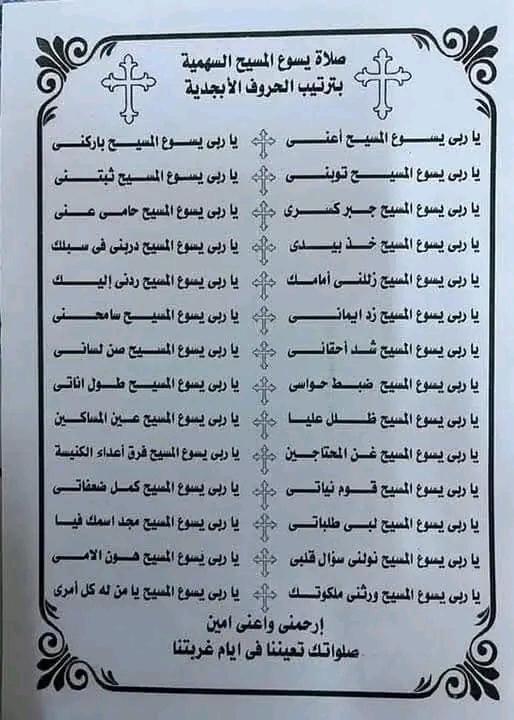 صلاة يسوع المسيح السهمية
بترتيب الحروف الأبجدية
يا ربى يسوع المسيح أعنى يا ربى يسوع المسيح باركنى
يا ربى يسوع المسيح توبنى يا ربى يسوع المسيح ثبتنى
يا ربى يسوع المسيح جبر كسرى يا ربى يسوع المسيح حامى عنى
يا ربى يسوع المسيح خذ بيدى يا ربى يسوع المسيح دربنى فى سبلك
يا ربى يسوع المسيح زللنى أمامك يا ربى يسوع المسيح ردنى إليك
يا ربى يسوع المسيح زد ايمانى يا ربى يسوع المسيح سامحنى
يا ربى يسوع المسيح شد أحقانى يا ربى يسوع المسيح صن لسانى
يا ربى يسوع المسيح ضبط حواسى يا ربى يسوع المسيح طول اناتى
يا ربى يسوع المسيح ظلل عليا يا ربى يسوع المسيح عين المساكين
يا ربى يسوع المسيح غن المحتاجين يا ربى يسوع المسيح فرق أعداء الكنيسة
يا ربى يسوع المسيح قوم نياتى يا ربى يسوع المسيح كمل ضعفاتى
يا ربى يسوع المسيح لبى طلباتى يا ربى يسوع المسيح مجد اسمك فيا
يا ربى يسوع المسيح نولنى سؤال قلبى يا ربى يسوع المسيح هون الامى
يا ربى يسوع المسيح ورثنى ملكوتك يا ربى يسوع المسيح يا من له كل أمرى
إرحمنى وأعنى امين
صلواتك تعيننا فى ايام غربتنا